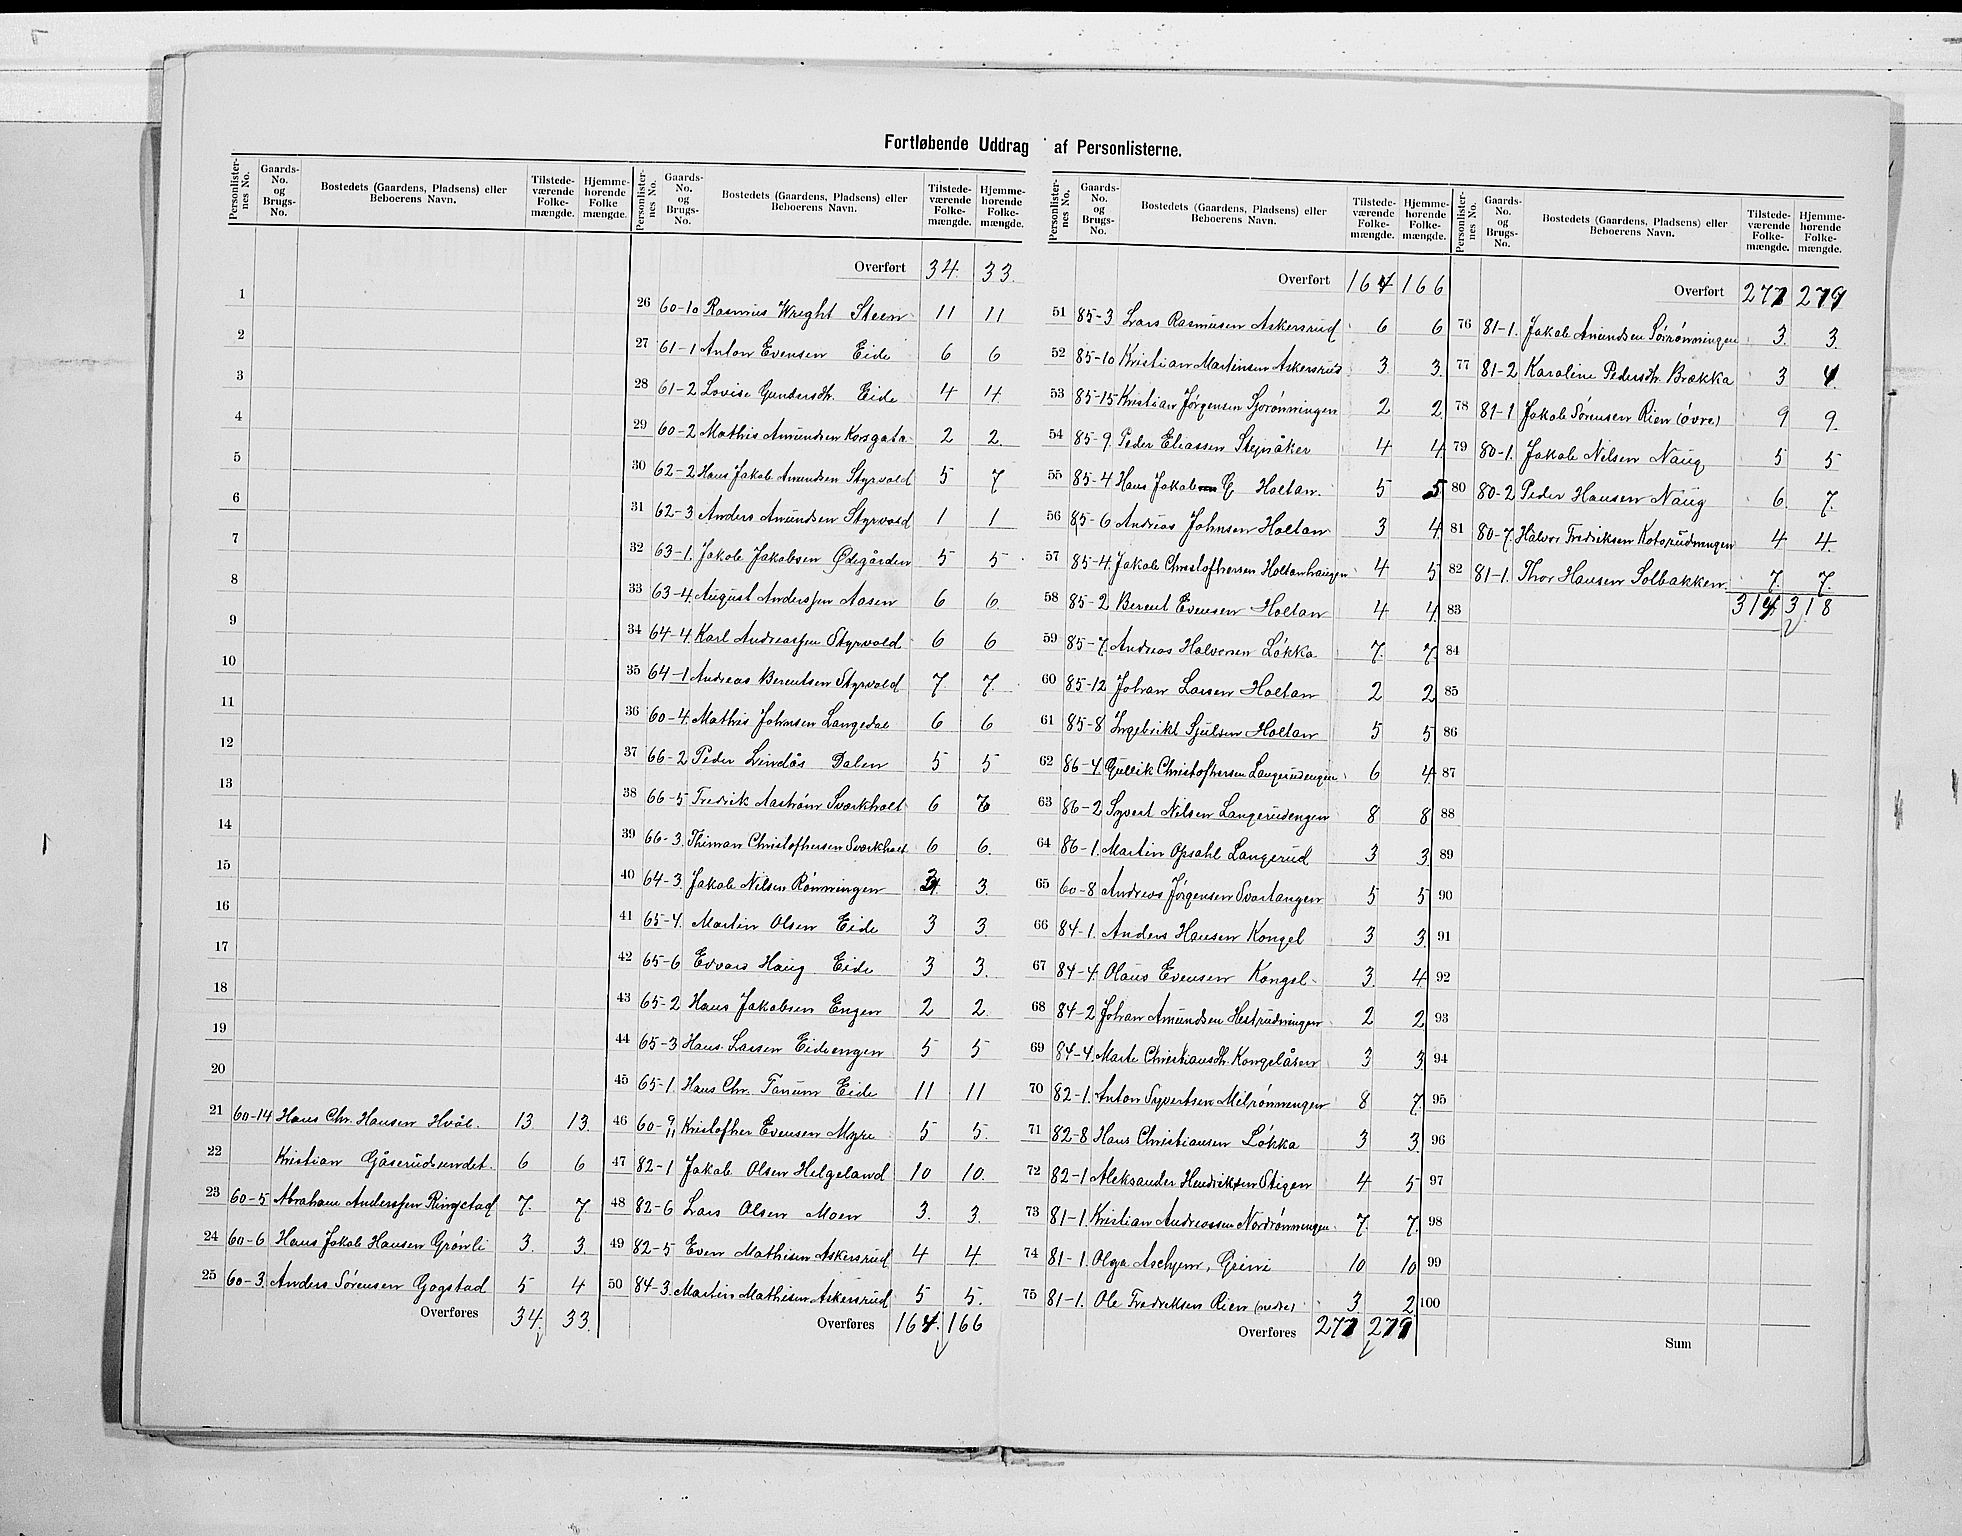 Fortløbende Uddrag af Personlisterne.
Personlisternes No. Gaards-No. og Brugs-No. Bostedets (Gaardens, Pladsens) eller Beboerens Navn. Tilstedeværende Folkemængde. Hjemmehørende Folkemængde.
1
2
3
4
5
6
7
8
9
10
11
12
13
14
15
16
17
18
19
20
21 60-14 Hans Chr. Hansen Hvål. 13. 13.
22 Kristian Gåserudsundet. 6 6
23 60-5 Abraham Anderssen Ringstad 7. 7
24 60-6 Hans Jakob Hansen Grønli 3. 3.
25 60-3. Anders Sørensen Gogstad 5 4
Overføres 34. 33.
Personlisternes No. Gaards-No. og Brugs-No. Bostedets (Gaardens, Pladsens) eller Beboerens Navn. Tilstedeværende Folkemængde. Hjemmehørende Folkemængde.
Overført 34. 33.
26 60-10 Rasmus Wright Steen 11 11
27 61-1 Anton Evensen Eide 6 6
28 61-2 Lovise Gundersdtr. Eide 4 4
29 60-2 Mathis Amundsen Korsgata 2 2
30 62-2 Hans Jakob Amundsen Styrvold 5 7
31 62-3. Anders Amundsen Styrvold 1 1
32 63-1. Jakob Jakobsen Ødegården 5 5
33 63-4. August Anderssen Aasen 6 6
34 64-4. Karl Andreassen Styrvold 6 6
35 64-1 Andreas Berentsen Styrvold 7 7
36 60-4. Mathis Johnsen Langedal 6 6
37 66-2 Peder Lindås Dalen 5 5
38 66-5 Fredrik Aastrøm Svarkholt 6 7
39 66-3. Thiman Christofhersen Svarkholt 6 6.
40 64-3. Jakob Nilsen Rønningen 3 3.
41 65-4. Martin Olsen Eide 3 3.
42 65-6 Edvars Haug Eide 3 3.
43 65-2 Hans Jakobsen Engen 2 2.
44 65-3 Hans Larsen Eideengen 5 5
45 65-1. Hans Chr. Tanum Eide 11 11
46 60-9/11 Kristofher Evensen Myre 5 5.
47 82-1 Jakob Olsen Helgeland 10 10.
48 82-6 Lars Olsen Moen 3. 3.
49 82-5 Even Mathisen Askersrud 4 4.
50 84-3. Martin Mathisen Askersrud 5 5.
Overføres 164. 166
Personlisternes No. Gaards-No. og Brugs-No. Bostedets (Gaardens, Pladsens) eller Beboerens Navn. Tilstedeværende Folkemængde. Hjemmehørende Folkemængde.
Overført 164 166
51 85-3 Lars Rasmusen Askersrud 6 6
52 85-10 Kristian Martinsen Askersrud 3 3.
53 85-15 Kristian Jørgensen Sjorønningen 2 2
54 85-9. Peder Eliassen Stepåker 4 4
55 85-4 Hans Jakob E Holtan. 5 5
56 85-6 Andreas Johnsen Holtan 3 4
57 85-4. Jakob Christofhersen Holtanhaugen 4 5
58 85-2 Berent Evensen Holtan 4 4.
59 85-7. Andreas Halvorsen Løkka 7. 7.
60 85-12 Johan Larsen Holtan 2 2
61 85-8 Ingebrikt Sjulsen Holtan 5 5
62 86-4. Gullik Christofhersen Langerudengen 6 4
63 86-2 Syvert Nilsen Langerudengen 8 8
64 86-1. Martin Opsahl Langerud 3 3
65 60-8 Andreas Jørgensen Svartangen 5 5
66 84-1. Anders Hansen Kongel 3 3.
67 84-4. Olaus Evensen Kongel 3. 4
68 84-2 Johan Amundsen Hestrudningen 2 2
69 84-4 Marte Christiansdtr. Kongelåsen 3 3.
70 82-1. Anton Syvertsen Melrønningen 8 7.
71 82-8 Hans Christiansen Løkka 3 3.
72 82-1 Aleksander Hendriksen Stigen 4 5
73 81-1. Kristian Andreassen Nordrønningen 7 7.
74 81-1. Olga Aschjem, Grini 10 10
75 81-1. Ole Fredriksen Rien (nedre) 3. 2.
Overføres 277 279
Personlisternes No. Gaards-No. og Brugs-No. Bostedets (Gaardens, Pladsens) eller Beboerens Navn. Tilstedeværende Folkemængde. Hjemmehørende Folkemængde.
Overført 277 279
76 81-1. Jakob Amundsen Sørrønningen 3. 3.
77 81-2 Karoline Pedersdtr. Brækka 3 4.
78 81-1 Jakob Sørensen Rien (øvre) 9 9.
79 80-1. Jakob Nilsen Naug 5 5
80 80-2 Peder Hansen Naug 6. 7.
81 80-7. Halvor Fredriksen Kotorudningen 4 4.
82 81-1. Thor Hansen Solbakken 7. 7.
83 314 318
84
85
86
87
88
89
90
91
92
93
94
95
96
97
98
99
100
Sum